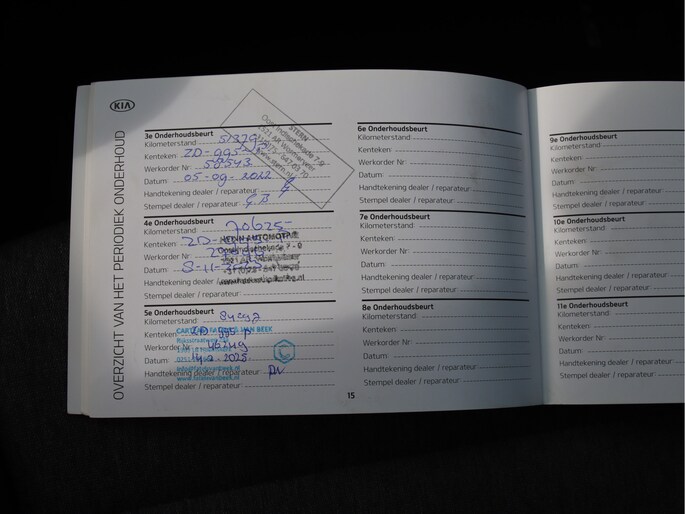 KIA
OVERZICHT VAN HET PERIODIEK ONDERHOUD
3e Onderhoudsbeurt
Kilometerstand
Kenteken: ZD-995-P
Werkorder Nr: 58543
Datum: 05-09-2022
Handtekening dealer / reparateur:
Stempel dealer / reparateur:
STERN
4e Onderhoudsbeurt
Kilometerstand: 70625-
Kenteken: ZD-
Werkorder Nr:
Datum: 8-11-
Handtekening dealer / reparateur:
Stempel dealer / reparateur:
5e Onderhoudsbeurt
Kilometerstand:
Kenteken:
VAN BEEK
Werkorder Nr:
Datum: 2025
info@fotolevanbeek.nl
Handtekening dealer / reparateur:
Stempel dealer / reparateur:
6e Onderhoudsbeurt
Kilometerstand:
Kenteken:
Werkorder Nr:
Datum:
Handtekening dealer / reparateur:
Stempel dealer / reparateur:
7e Onderhoudsbeurt
Kilometerstand:
Kenteken:
Werkorder Nr:
Datum:
Handtekening dealer / reparateur:
Stempel dealer / reparateur:
8e Onderhoudsbeurt
Kilometerstand:
Kenteken:
Werkorder Nr:
Datum:
Handtekening dealer / reparateur:
Stempel dealer / reparateur:
15
9e Onderhoudsbeurt
Kilometerstand:
Kenteken:
Werkorder Nr:
Datum:
Handtekening dealer / reparateur:
Stempel dealer / reparateur:
10e Onderhoudsbeurt
Kilometerstand:
Kenteken:
Werkorder Nr:
Datum:
Handtekening dealer / reparateur:
Stempel dealer / reparateur:
11e Onderhoudsbeurt
Kilometerstand:
Kenteken:
Werkorder Nr:
Datum:
Handtekening dealer / reparateur:
Stempel dealer / reparateur: